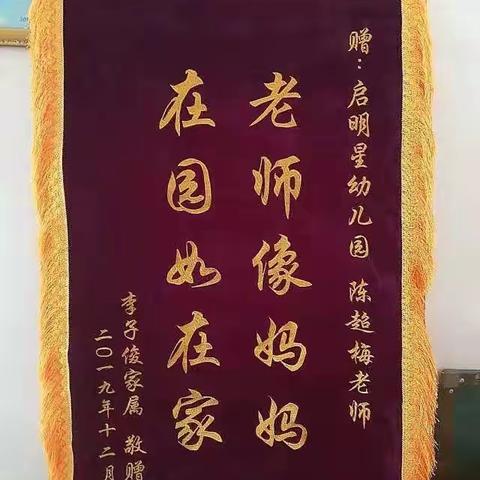 赠：启明星幼儿园 陈超梅老师
老师像妈妈
在园如在家
李子俊家属 敬赠
二〇一九年十二月